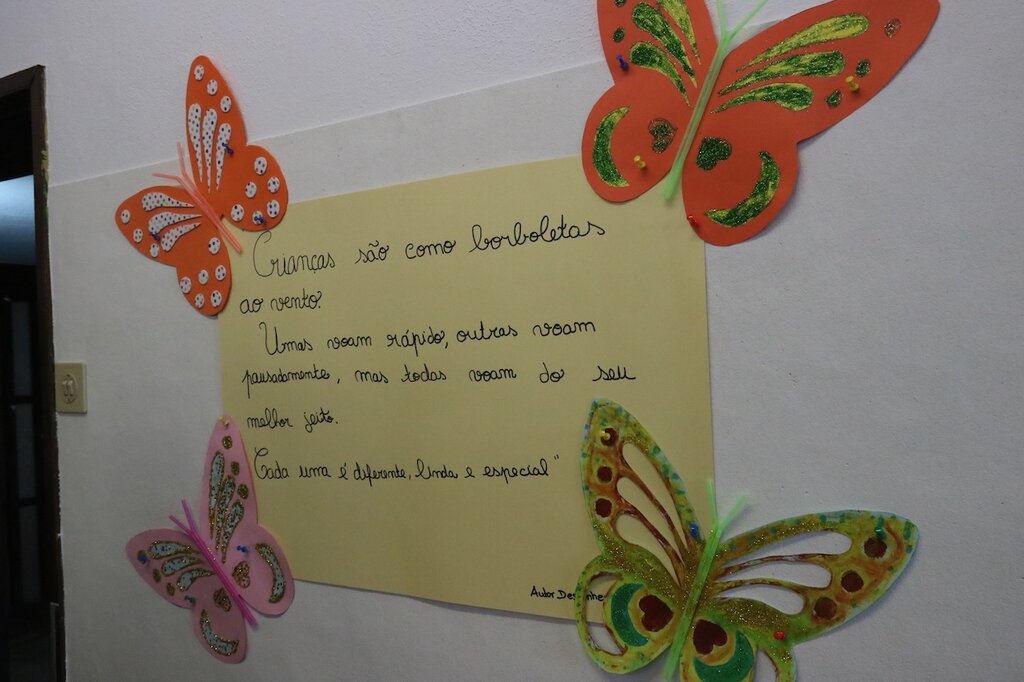 Crianças são como borboletas
ao vento.
Umas voam rápido, outras voam
pausadamente, mas todas voam do seu
melhor jeito.
Cada uma é diferente, linda e especial"
Autor